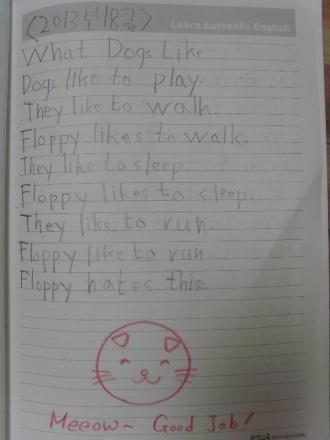 <2013년 18급>
Learn Authentic English
What Dogs Like
Dogs like to play.
They like to walk.
Floppy likes to walk.
They like to sleep.
Floppy likes to sleep.
They like to run.
Floppy like to run.
Floppy hates this.
Meeow~ Good Job!